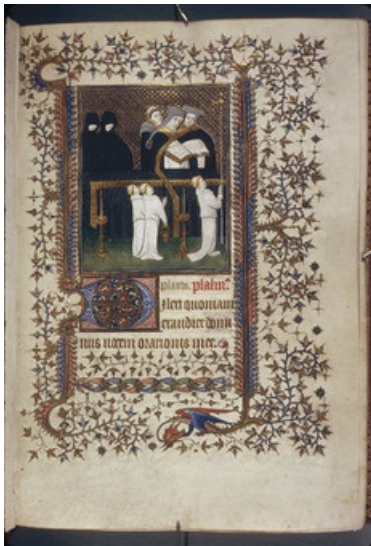 Placebo. psalmꝰ
Dilexi quoniam
exaudiet domi
nus uocem orationis mee.